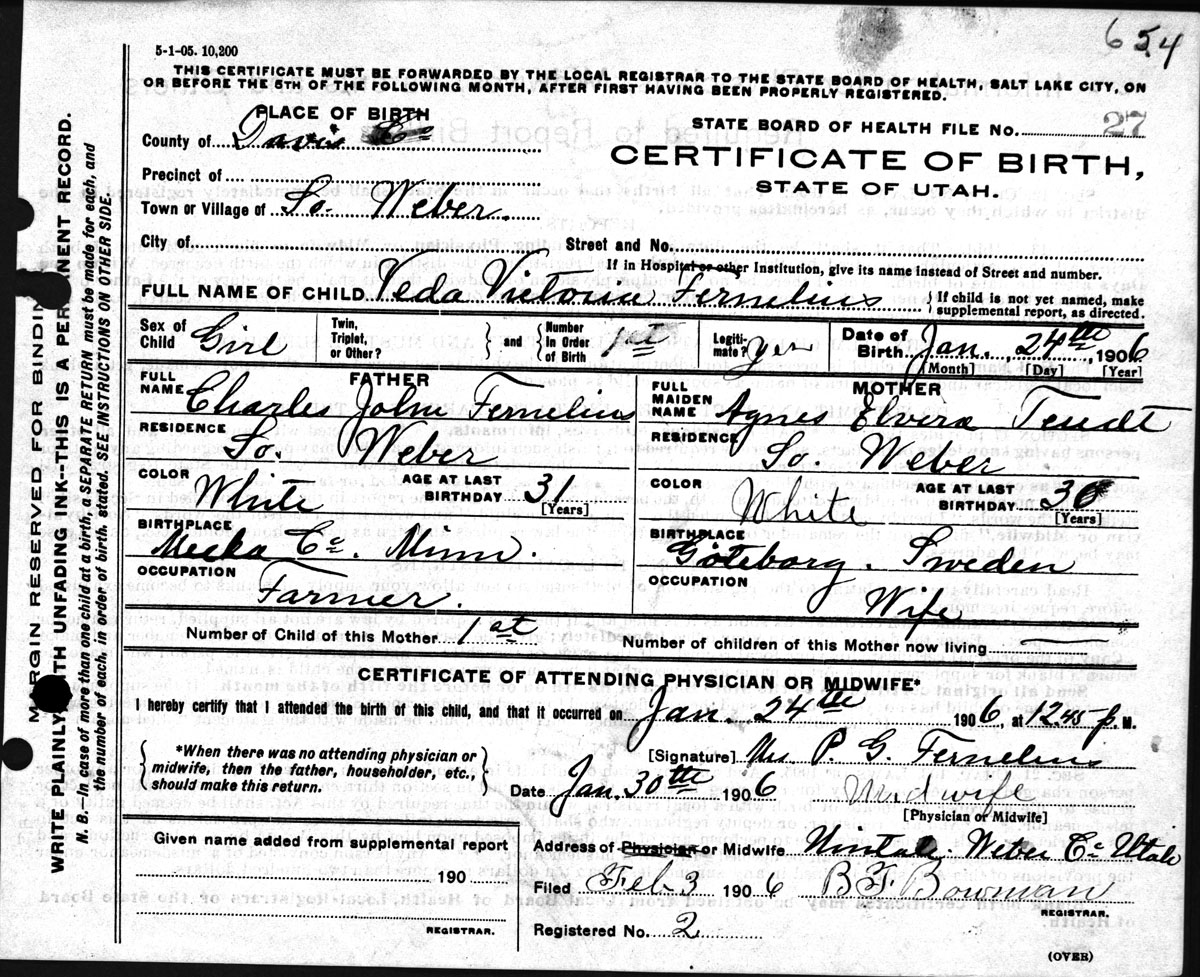 654
5-1-05. 10,200
THIS CERTIFICATE MUST BE FORWARDED BY THE LOCAL REGISTRAR TO THE STATE BOARD OF HEALTH, SALT LAKE CITY, ON
OR BEFORE THE 5TH OF THE FOLLOWING MONTH, AFTER FIRST HAVING BEEN PROPERLY REGISTERED.
PLACE OF BIRTH
STATE BOARD OF HEALTH FILE No. 27
County of Davis Co
CERTIFICATE OF BIRTH,
STATE OF UTAH.
Precinct of
Town or Village of So. Weber.
City of Street and No.
If in Hospital or other Institution, give its name instead of Street and number.
FULL NAME OF CHILD Veda Victoria Fernelius { If child is not yet named, make supplemental report, as directed.
Sex of Child Girl Twin, Triplet, or Other? } and { Number in Order of Birth 1st Legitimate? yes Date of Birth Jan. 24th, 1906
[Month] [Day] [Year]
FATHER
FULL NAME Charles John Fernelius
RESIDENCE So. Weber
COLOR White AGE AT LAST BIRTHDAY 31 [Years]
BIRTHPLACE Meeka Co. Minn.
OCCUPATION Farmer.
MOTHER
FULL MAIDEN NAME Agnes Elvira Teudt
RESIDENCE So. Weber
COLOR White AGE AT LAST BIRTHDAY 30 [Years]
BIRTHPLACE Göteborg. Sweden
OCCUPATION Wife
Number of Child of this Mother 1st Number of children of this Mother now living
CERTIFICATE OF ATTENDING PHYSICIAN OR MIDWIFE*
I hereby certify that I attended the birth of this child, and that it occurred on Jan. 24th 1906, at 12.45 P. M.
{ *When there was no attending physician or midwife, then the father, householder, etc., should make this return. }
[Signature] Mrs P. G. Fernelius
Date Jan. 30th 1906 Midwife
[Physician or Midwife]
Given name added from supplemental report
190
REGISTRAR.
Address of Physician or Midwife Uintah. Weber Co Utah
Filed Feb 3 1906 B.F. Bowman
REGISTRAR.
Registered No. 2
(OVER)
MARGIN RESERVED FOR BINDING
WRITE PLAINLY WITH UNFADING INK--THIS IS A PERMANENT RECORD.
N. B.--In case of more than one child at a birth, a SEPARATE RETURN must be made for each, and
the number of each, in order of birth, stated. SEE INSTRUCTIONS ON OTHER SIDE.